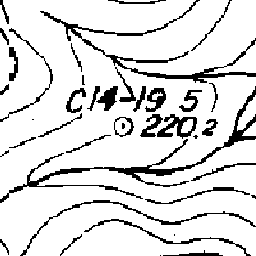 C14-19 5
220.2